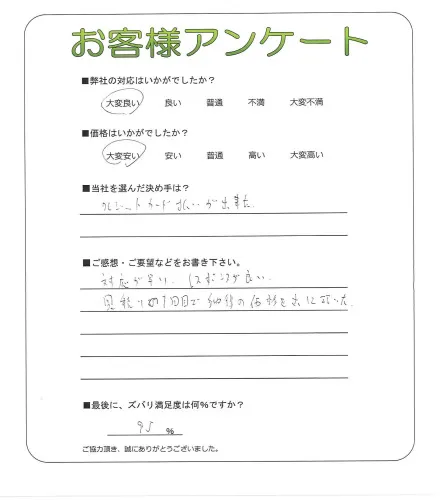 お客様アンケート
■弊社の対応はいかがでしたか？
大変良い 良い 普通 不満 大変不満
■価格はいかがでしたか？
大変安い 安い 普通 高い 大変高い
■当社を選んだ決め手は？
クレジットカード払いが出来た。
■ご感想・ご要望などをお書き下さい。
対応が早い、レスポンスが良い。
見積り初1回目で納得の価格を出して
■最後に、ズバリ満足度は何%ですか？
95 %
ご協力頂き、誠にありがとうございました。